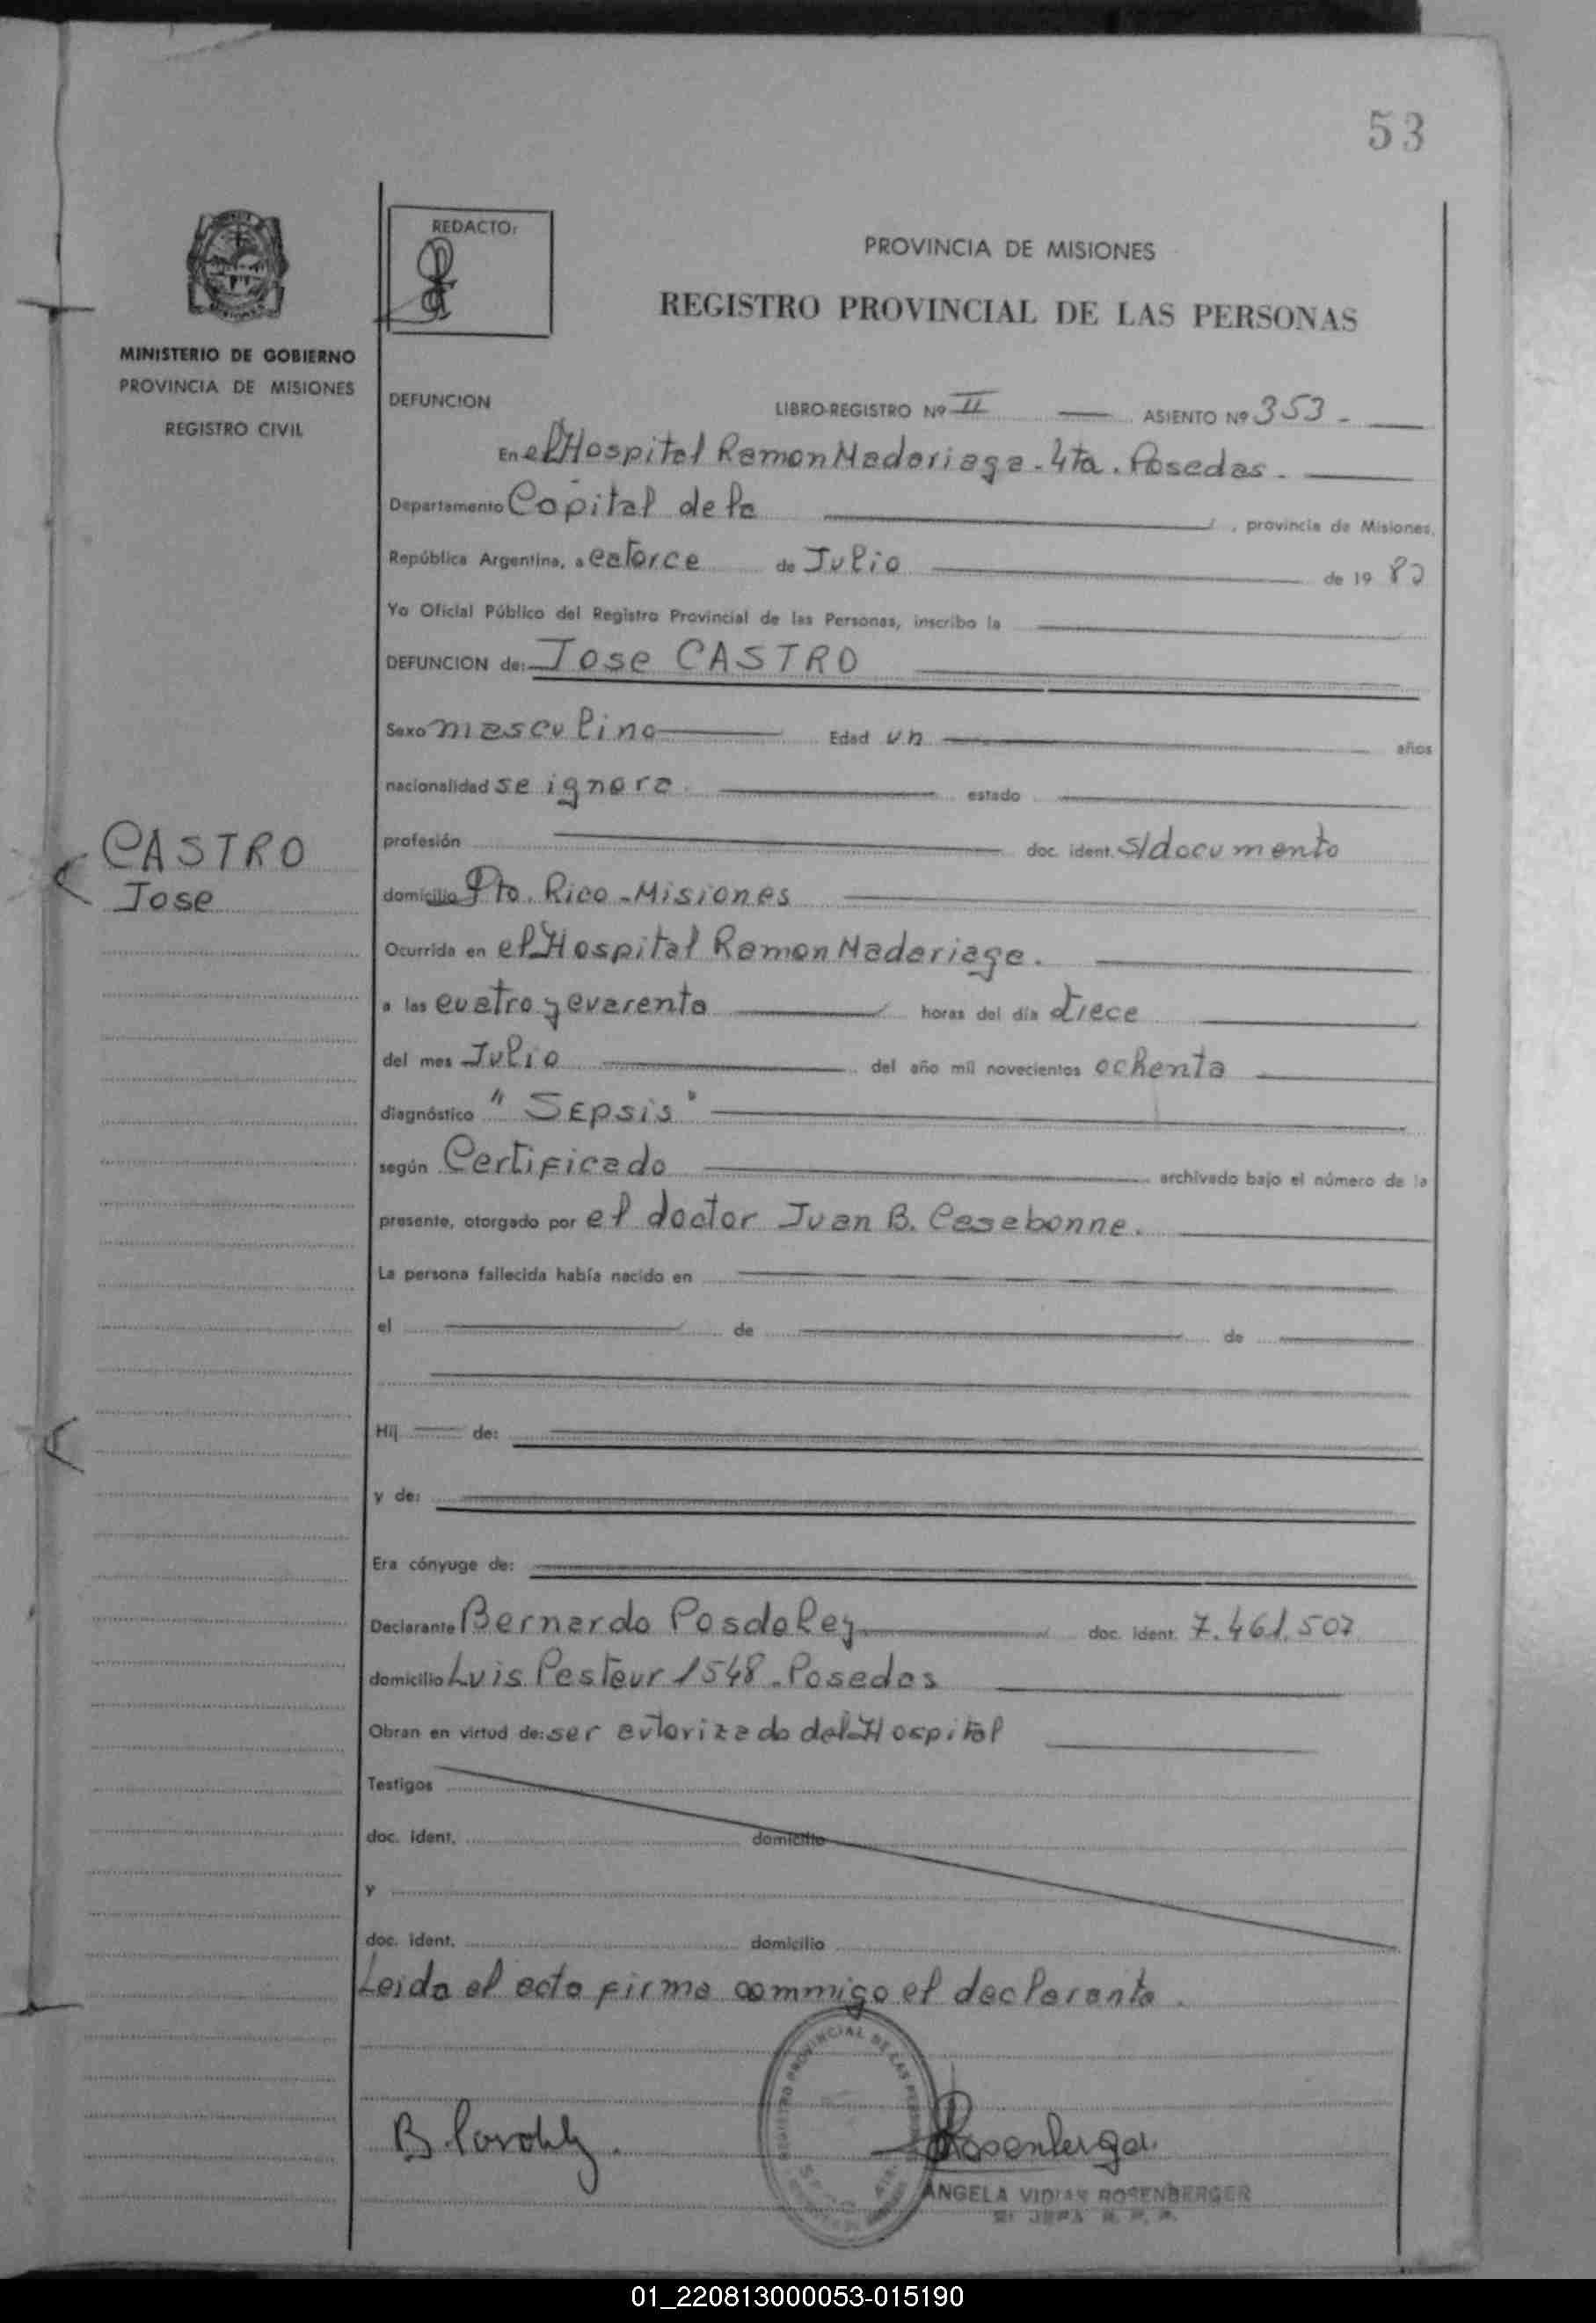 53
REDACTO:
PROVINCIA DE MISIONES
REGISTRO PROVINCIAL DE LAS PERSONAS
MINISTERIO DE GOBIERNO
PROVINCIA DE MISIONES
REGISTRO CIVIL
DEFUNCION LIBRO-REGISTRO Nº II ASIENTO Nº 353 -
En el Hospital Ramon Madariaga - 4ta. Posadas.
Departamento Capital de la , provincia de Misiones,
República Argentina, a catorce de Julio de 19 80
Yo Oficial Público del Registro Provincial de las Personas, inscribo la
DEFUNCION de: Jose CASTRO
Sexo masculino Edad un años
nacionalidad se ignora. estado
profesión doc. ident. s/documento
CASTRO
Jose
domicilio Pto. Rico - Misiones
Ocurrida en el Hospital Ramon Madariaga.
a las cuatro y cuarenta horas del día trece
del mes Julio del año mil novecientos ochenta
diagnóstico "Sepsis"
según Certificado archivado bajo el número de la
presente, otorgado por el doctor Juan B. Casabonne.
La persona fallecida había nacido en
el de de
Hij de:
y de:
Era cónyuge de:
Declarante Bernardo Posdeley doc. ident. 7.461.507
domicilio Luis Pasteur 1548 - Posadas
Obran en virtud de: ser autorizado del Hospital
Testigos
doc. ident. domicilio
y
doc. ident. domicilio
Leida el acta firma commigo el declarante.
REGISTRO PROVINCIAL DE LAS PERSONAS
Rosenberger
ANGELA VIDIAN ROSENBERGER
01_220813000053-015190